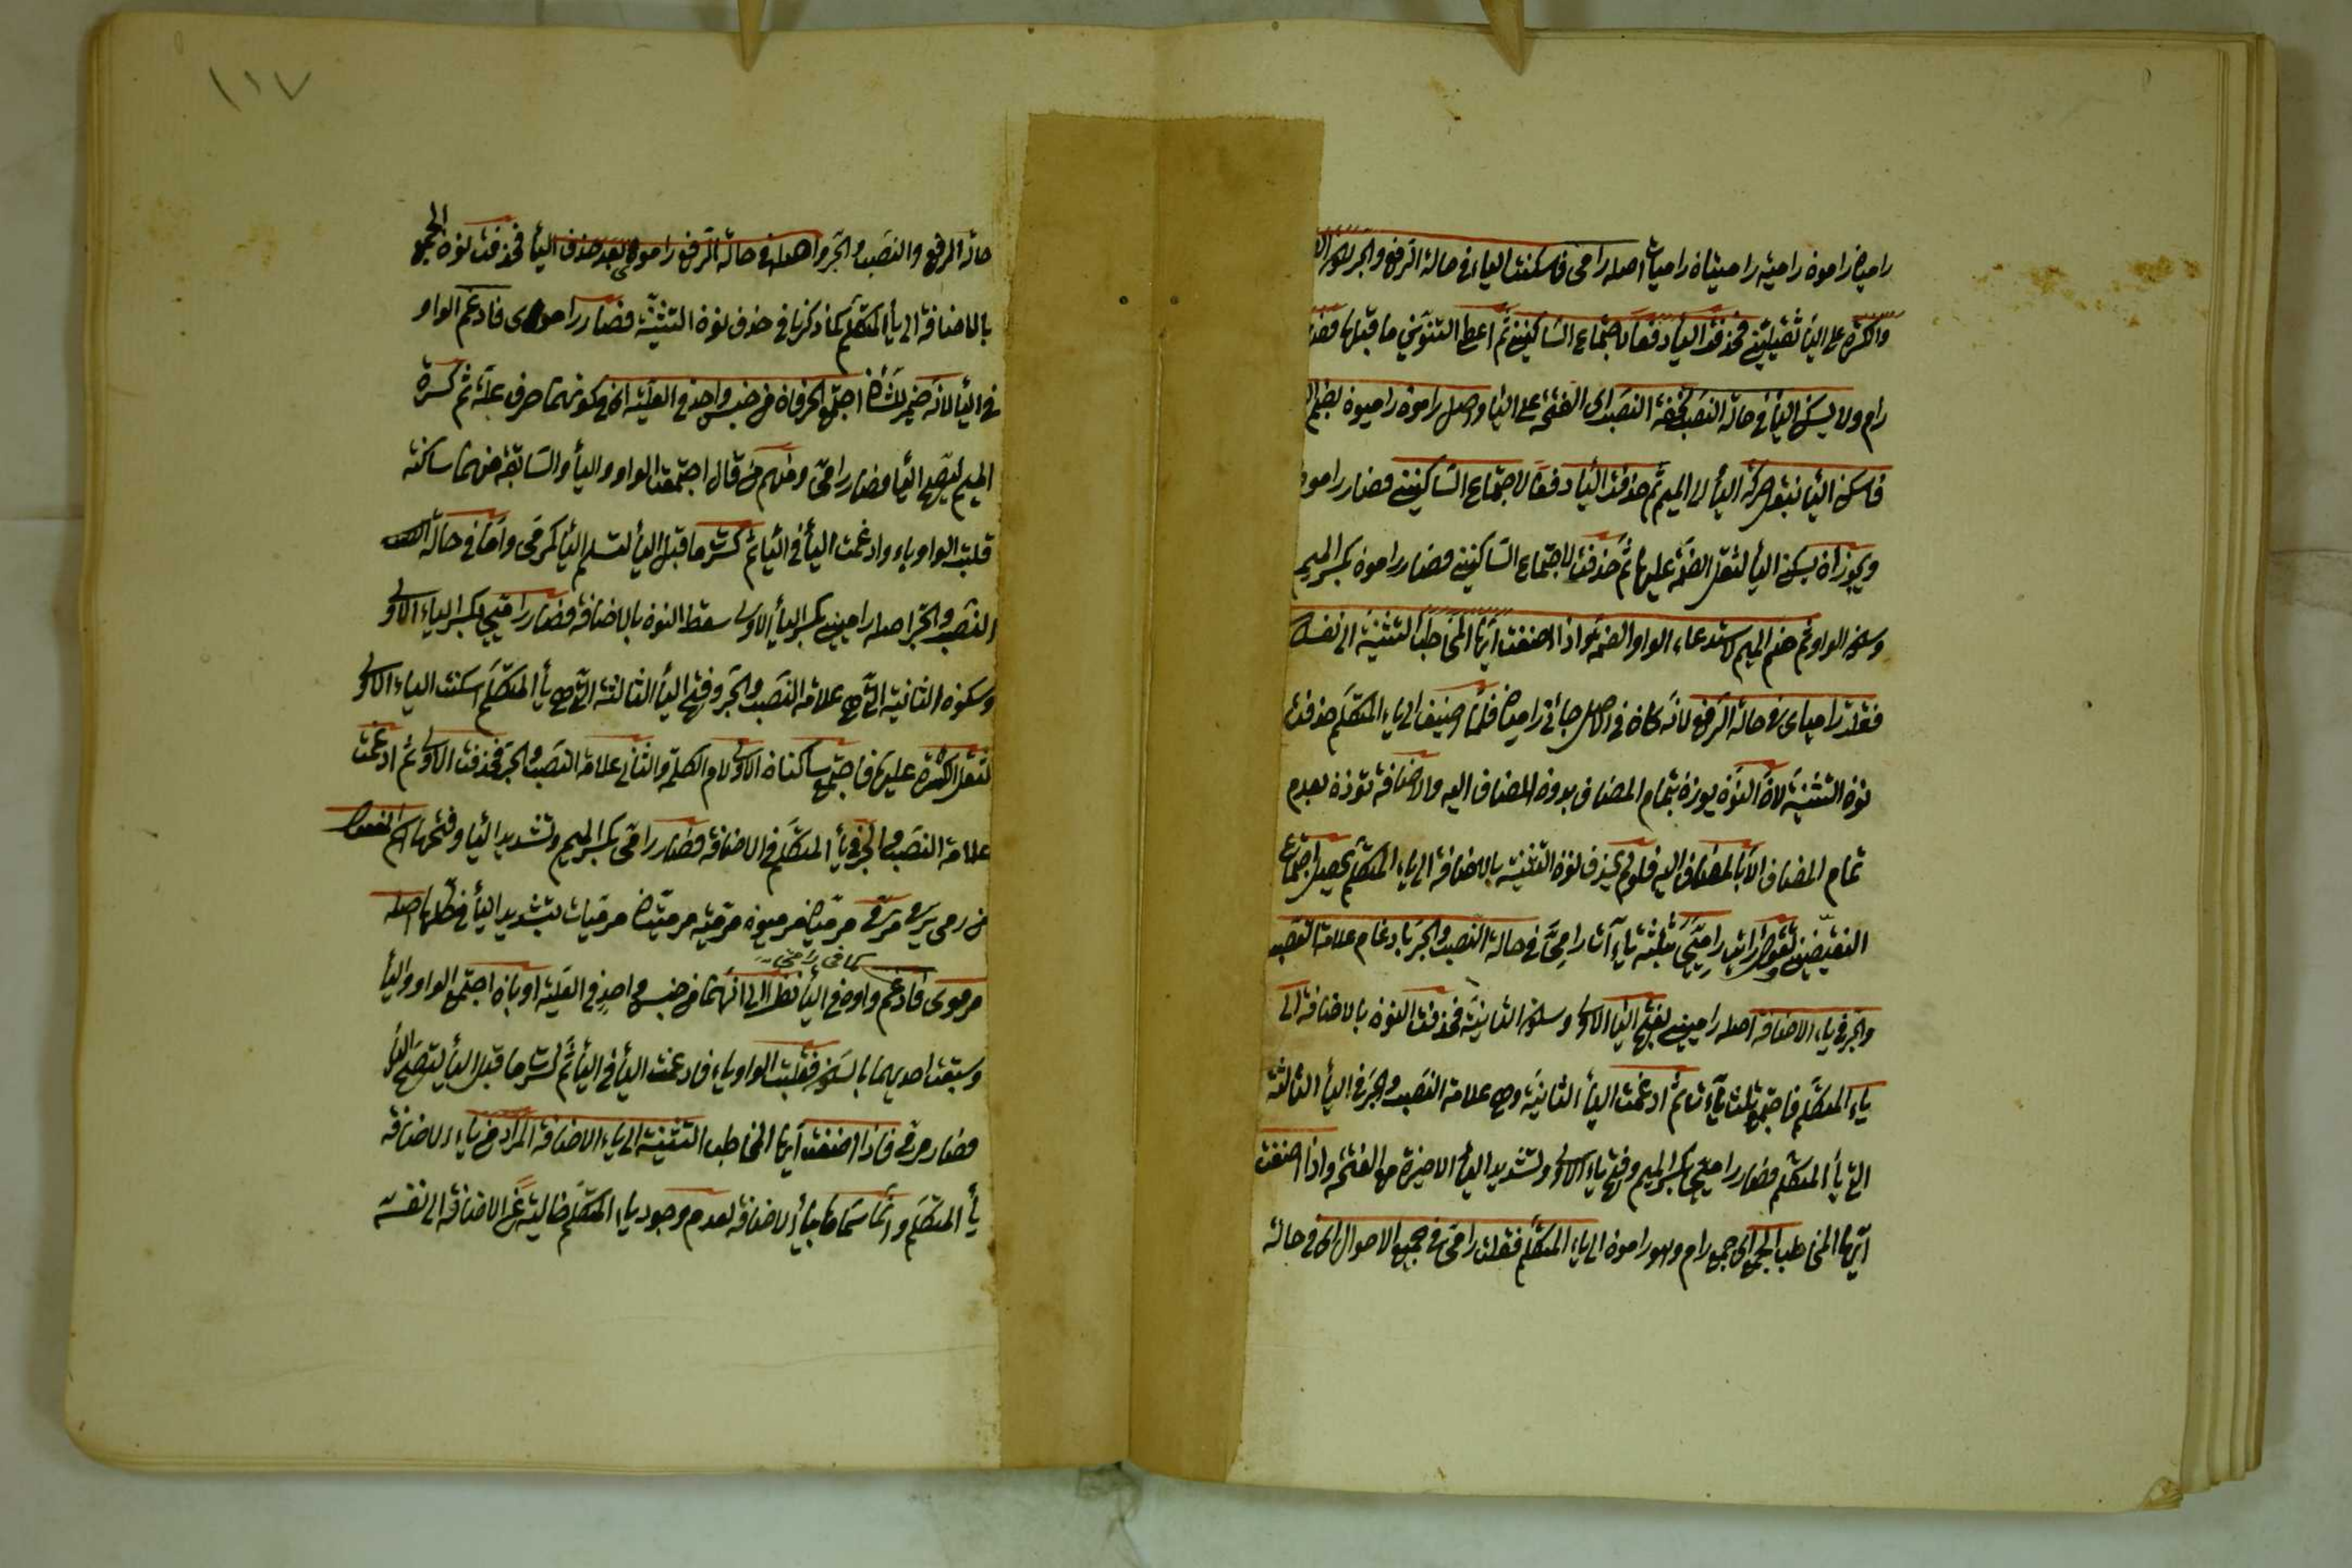 راميان رامون رامية راميتان راميات اصله رامي فاسكنت الياء في حالة الرفع والجر
والكسرة على الياء ثقيلتين فحذفت الياء دفعا لاجتماع الساكنين ثم اعطي التنوين ما قبلها فصار
رام ولا يسكن الياء في حالة النصب لخفة النصب اى الفتحة على الياء واصل رامون راميون بضم
فاسكن الياء بنقل حركة الياء الى الميم ثم حذفت الياء دفعا لاجتماع الساكنين فصار رامون
ويجوز ان يسكن الياء لثقل الضمة عليها ثم حذفت لاجتماع الساكنين فصار رامون بكسر الميم
وسكون الواو ثم ضم الميم لاستدعاء الواو الضمة واذا اضفت ايها المخاطب التثنية الى نفسك
فقلت رامياى في حالة الرفع لانه كان في الاصل جائنى راميان فلما اضيف الى ياء المتكلم حذفت
نون التثنية لان النون يوذن بتمام المضاف بدون المضاف اليه والاضافة توذن بعدم
تمام المضاف الا بالمضاف اليه فلو لم يحذف نون التثنية بالاضافة الى ياء المتكلم يحصل اجتماع
النقيضين وتقول رايت راميي بثلثة ياآت راميي في حالة النصب والجر بادغام علامة النصب
والجر في ياء الاضافة اصله راميين بفتح الياء الاولى وسكون الثانية فحذفت النون بالاضافة الى
ياء المتكلم فاجتمع ثلث ياآت ثم ادغمت الياء الثانية وهى علامة النصب والجر في الياء الثالثة
التي ياء المتكلم فصار راميي بكسر الميم وفتح ياء الاولى وتشديد الياء الاخيرة مع الفتحة واذا اضفت
ايها المخاطب الجمع اى جمع رام وهو رامون الى ياء المتكلم فقلت رامي في جميع الاحوال اى في حالة
١١٧
حالة الرفع والنصب والجر واصله في حالة الرفع راموى بعد حذف الياء فحذفت نون الجمع
بالاضافة الى ياء المتكلم كما ذكرنا في حذف نون التثنية فصار راموى فادغم الواو
في الياء لانه اجتمع الحرفان من جنس واحد في العلية اى في كونهما حرف علة ثم كسرة
الميم ليصح الياء فصار رامي ومنهم من قال اجتمعت الواو والياء والسابقة منهما ساكنة
قلبت الواو ياء وادغمت الياء في الياء ثم كسرت ما قبل الياء لتسلم الياء كمرمي واما في حالة
النصب والجر اصله راميين بكسر الياء الاولى سقط النون بالاضافة فصار راميي بكسر الياء الاولى
وسكون الثانية التي هى علامة النصب والجر وفتح الياء الثالثة التي هى ياء المتكلم اسكنت الياء الاولى
لثقل الكسرة عليها فاجتمع ساكنان الاولى لام الكلمة والثاني علامة النصب والجر فحذفت الاولى ثم ادغمت
علامة النصب والجر في ياء المتكلم في الاضافة فصار رامي بكسر الميم وتشديد الياء وفتحها اسم المفعول
من رمى يرمى مرمي مرميان مرميون مرمية مرميتان مرميات بتشديد الياء في كلها اصله
كما في رامي
مرموى فادغم واوه في الياء نظرا الى انهما من جنس واحد في العلية او بان اجتمع الواو والياء
وسبقت احديهما بالسكون فقلبت الواو ياء فادغمت الياء في الياء ثم كسرت ما قبل الياء ليصح الياء
فصار مرمي فاذا اضفت ايها المخاطب التثنية الى ياء الاضافة المراد من ياء الاضافة
ياء المتكلم وانما سماها بياء الاضافة لعدم وجود ياء المتكلم خالية عن الاضافة الى نفسه